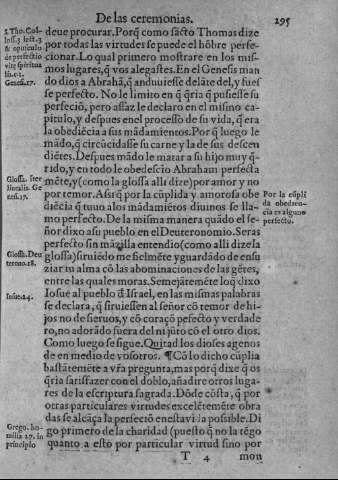 De las ceremonias. 295
S. Tho. Col-
loss. 3. lect. 3
& opusculo
de perfectio
vitę spiritua
lis. c. 1.
Genes. 17.
deue procurar. Porq como sācto Thomas dize
por todas las virtudes se puede el hōbre perfe-
cionar. Lo qual primero mostrare en los mis-
mos lugares, q̃ vos alegastes. En el Genesis man
do dios a Abrahã, q̃ anduuiesse dēlãte del, y fues
se perfecto. No le limito en q̃ q̃ria q̃ pusiesse su
perfeciō, pero assaz le declaro en el mismo ca-
pitulo, y despues enel processo de su vida, q̃ era
la obediēcia a sus mãdamientos. Porq̃ luego le
mãdo, q̃ circũcidasse su carne y la de sus descen
diētes. Despues mãdo le matar a su hijo muy q̃-
rido, y en todo le obedescio Abraham perfecta
mēte, y (como la glossa alli dize) por amor y no
por temor. Assi q̃ por la cũplida y amorosa obe
diēcia q̃ tuuo alos mãdamiētos diuinos se lla-
mo perfecto. De la misma manera quãdo el se-
ñor dixo asu pueblo en el Deuteronomio. Seras
perfecto sin mãzilla entendio (como alli dize la
glossa) siruiēdo me fielmēte y guardãdo de ensu
ziar tu alma cō las abominaciones de las gētes,
entre las quales moras. Semejãtemēte loq̃ dixo
Iosue al pueblo d̃ Israel, en las mismas palabras
se declara, q̃ siruiessen al señor cō temor de hi-
jos no de sieruos, y cō coraçō perfecto y verdade
ro, no adorãdo fuera del ni jũto cō el otro dios.
Como luego se sigue. Quitad los dioses agenos
de en medio de vosotros. ¶ Cō lo dicho cũplia
bastãtemēte a vr̃a pregunta, mas porq̃ dixe q̃ os
q̃ria satisfazer con el doblo, añadire otros luga-
res de la escriptura sagrada. Dōde cōsta, q̃ por
otras particulares virtudes excelētemēte obra
das se alcãça la perfeciō enesta vida possible. Di
go primero de la charidad (puesto q̃ no la tēgo
quanto a esto por particular virtud sino por
Glossa. inter
lineralis. Ge
nes. 17.
Por la cũpli
da obedien-
cia es alguno
perfecto.
Gloss. Deu
terono. 18.
Iosue. 24.
Grego. ho-
milia 27. in
principio
T 4 mou